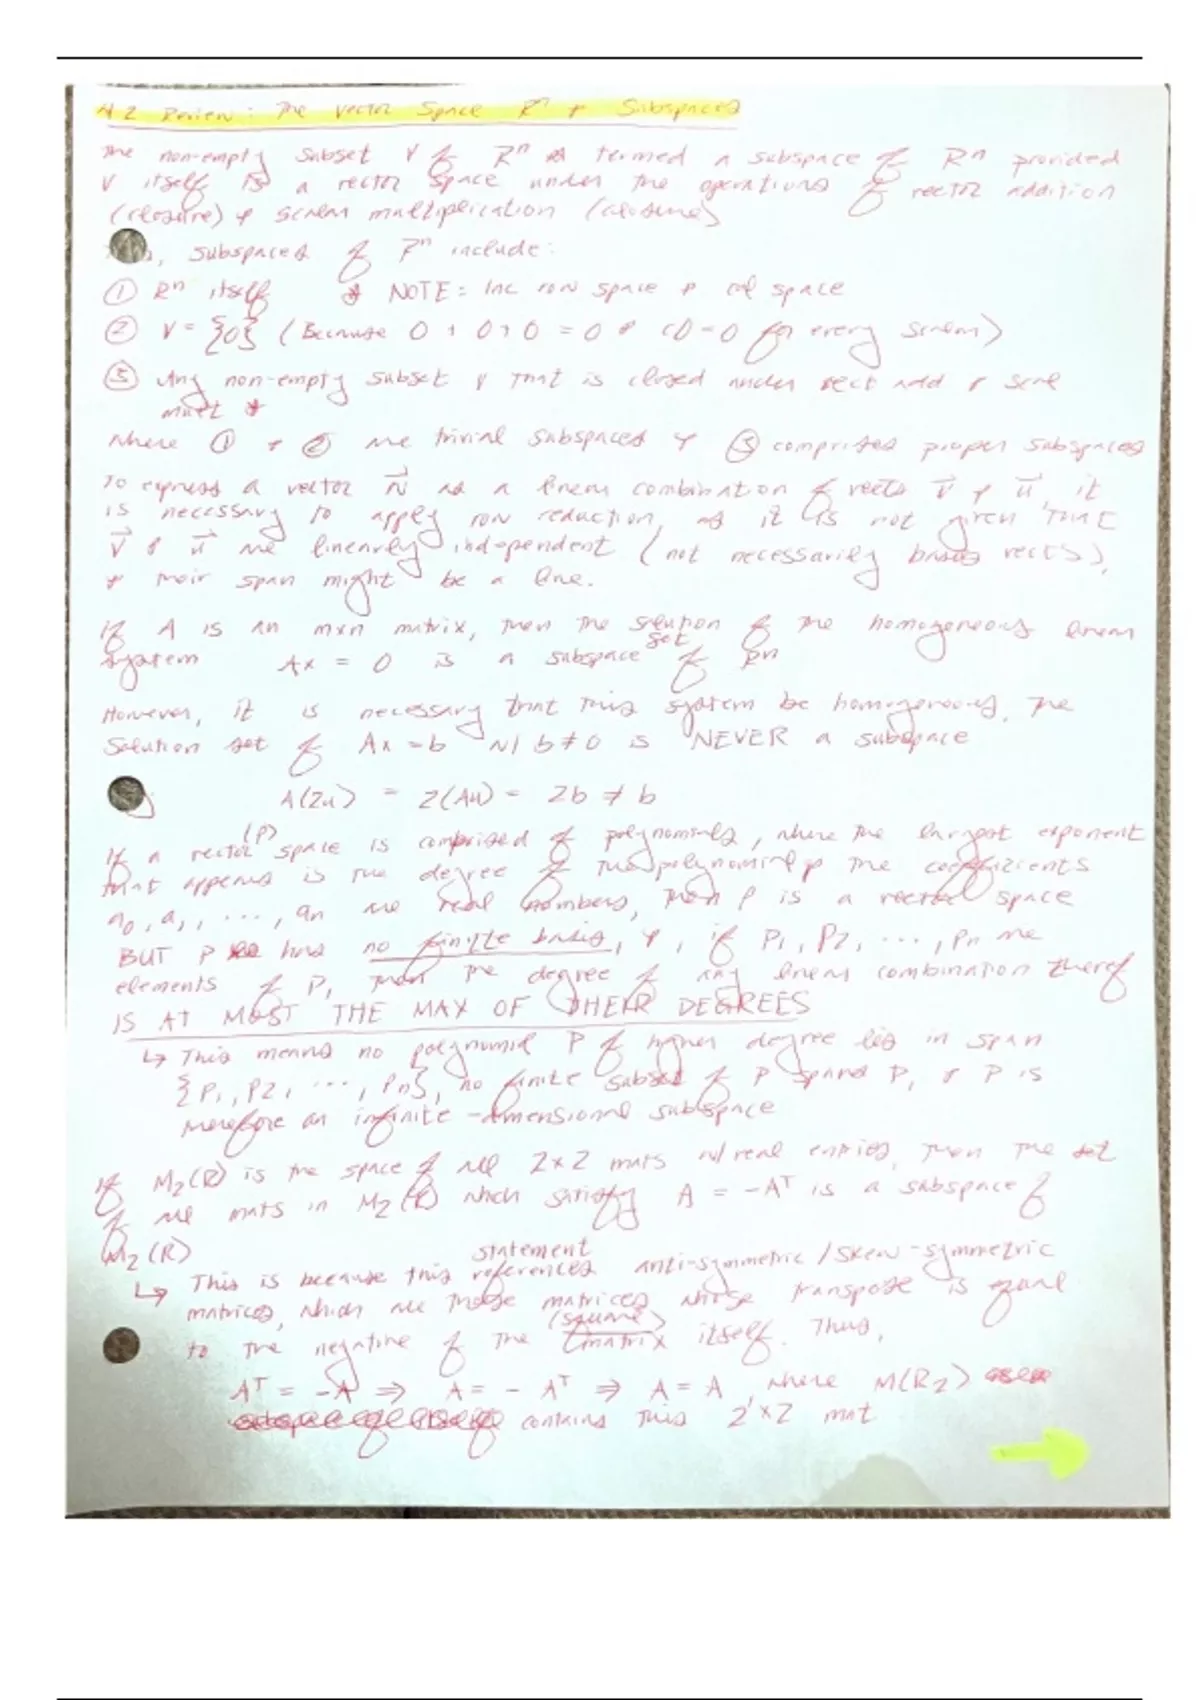 4.2 Review: The Vector Space Rⁿ + Subspaces
The non-empty subset V of Rⁿ is termed a subspace of Rⁿ provided
V itself is a vector space under the operations of vector addition
(closure) + scalar multiplication (closure)
, subspaces of Rⁿ include:
① Rⁿ itself * NOTE: Inc row space + col space
② V = {0} (Because 0 + 0 = 0 + c0 = 0 for every scalar)
③ Any non-empty subset V that is closed under vect add + scal
mult *
where ① + ② are trivial subspaces + ③ comprises proper subspaces
To express a vector w⃗ as a linear combination of vects v⃗ + u⃗, it
is necessary to apply row reduction, as it is not given that
v⃗ + u⃗ are linearly independent (not necessarily basis vects),
+ their span might be a line.
If A is an mxn matrix, then the solution set of the homogeneous linear
system Ax = 0 is a subspace of Rn
However, it is necessary that this system be homogeneous, the
solution set of Ax = b w/ b ≠ 0 is NEVER a subspace
A(2u) = 2(Au) = 2b ≠ b
If a vector space (P) is comprised of polynomials, where the largest exponent
that appears is the degree of the polynomial + the coefficients
a₀, a₁, ..., an are real numbers, then P is a vector space
BUT P has no finite basis, +, if P₁, P₂, ..., Pn are
elements of P, then the degree of any linear combination thereof
IS AT MOST THE MAX OF THEIR DEGREES
↳ This means no polynomial P of higher degree lies in span
{P₁, P₂, ..., Pn}, no finite subset of P spans P, + P is
therefore an infinite-dimensional subspace
If M₂(R) is the space of all 2x2 mats w/ real entries, then the set
of all mats in M₂(R) which satisfy A = -Aᵀ is a subspace of
M₂(R)
↳ This is because this statement references anti-symmetric/skew-symmetric
matrices, which are those matrices whose transpose is equal
to the negative of the (square) matrix itself. Thus,
Aᵀ = -A ⇒ A = -Aᵀ ⇒ A = A, where M(R₂)
contains this 2x2 mat